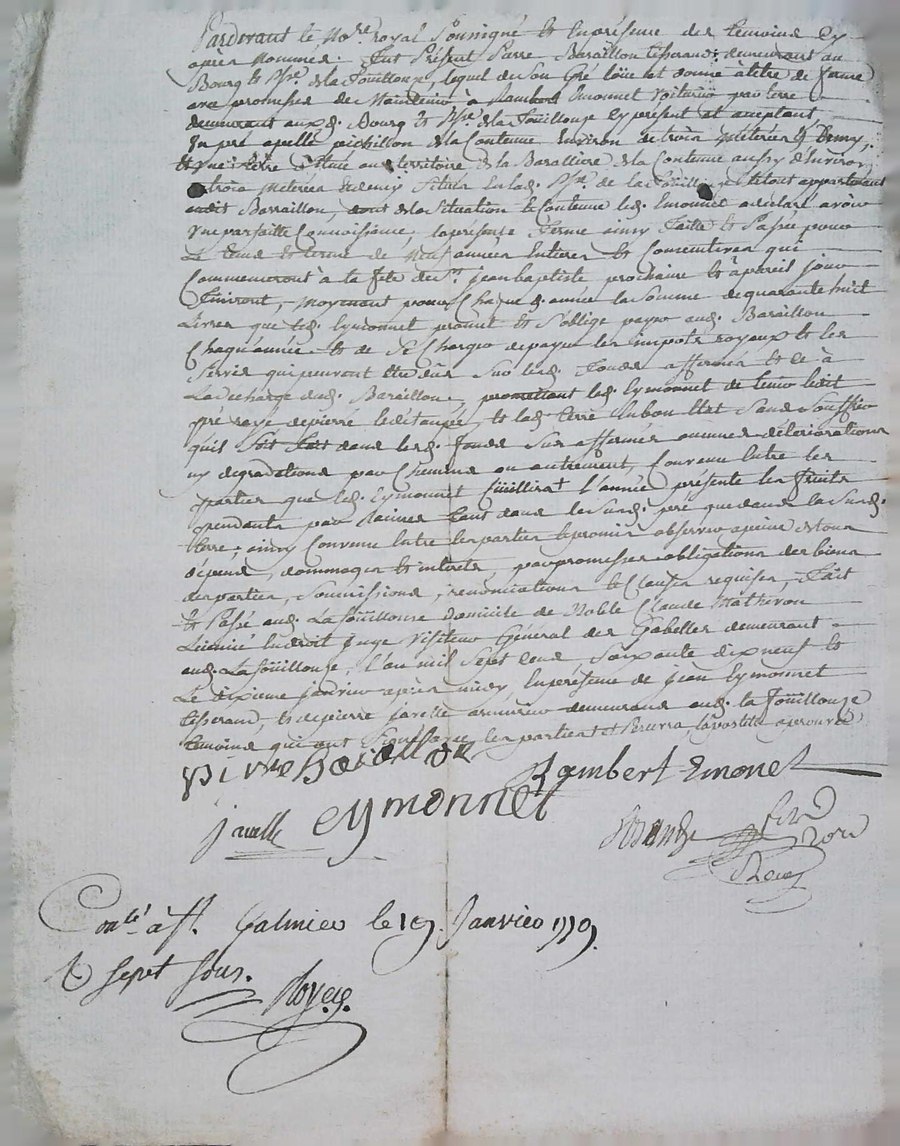 Pardevant le No.re royal Soussigné & en présence des temoins Cy
apres Nommés. fut Présent Pierre Baraillon tisserand, demeurant au
Bourg & P.sse de la foüillouze, lequel de Son Gré loüe et donne à titre de ferme
avec promesse de Maintenir à Rambert Emonnet Voiturier par terre
demeurant aud. Bourg & P.sse de la foüillouze Cy present et aceptant,
Un pré apellé pichillon de la Contenue Environ de trois Meterées & Demy,
& Une terre Située au territoire de la Baralliere de la Contenue aussy d'Environ
trois Meterées et demy Situés En lad. P.sse de la foüillouze & le tout appartenant
audit Barraillon, dont de la Situation & Contenue led. Emonnet a déclaré avoir
Une parfaitte Connoissance. la presente ferme ainsy faitte & Passée pour
Le tems & terme de Neuf années Entieres & Consecutives qui
Commenceront à la fete de St. jean baptiste prochaine & à pareil jour
finiront, Moyenant pour Chaque d. année la Somme de quarante huit
Livres que led. Eymonnet promet & S'oblige payer aud. Baraillon
Chaqu'année & de Se Charger de payer les impots royaux & les
Servis qui peuvent être dûs Sur lesd. fonds affermés & ce à
La decharge dud. Baraillon, promettant led. Eymonnet de tenir ledit
pré rayé depierré & & lad. terre en bon Etat Sans Souffrir
quil Soit fait dans lesd. fonds Sus affermés aucunes déteriorations
ny degradations par Chemins ou autrement, Convenu Entre les
parties que led. Eymonnet Cüeillira l'année présente les fruits
pendants par Racines tant dans le Susd. pré que dans la Susd.
terre; ainsy Convenu Entre les parties & promis observer a peine de tous
dépens, dommages & interets, par promesses obligations des biens
des parties, Soumissions, renonciations & Clauses requises, fait
& Passé aud. La foüillouze domicile de Noble Claude Mathevon
Licentié En droit Juge Visiteur Général des Gabelles demeurant
aud. La foüillouze, l'an mil Sept Cens Soixante dix neuf &
Le dixieme janvier après midy, En présence de jean Eymonnet
tisserand, & de pierre javelle armurier demeurans aud. la foüillouze
temoins qui ont Signé avec les parties
pierre Baraillon
Rambert Emonet
javelle eymonnet
Con.lé à St. Galmier le 19. Janvier 1779.
& sept sous.
Royer.